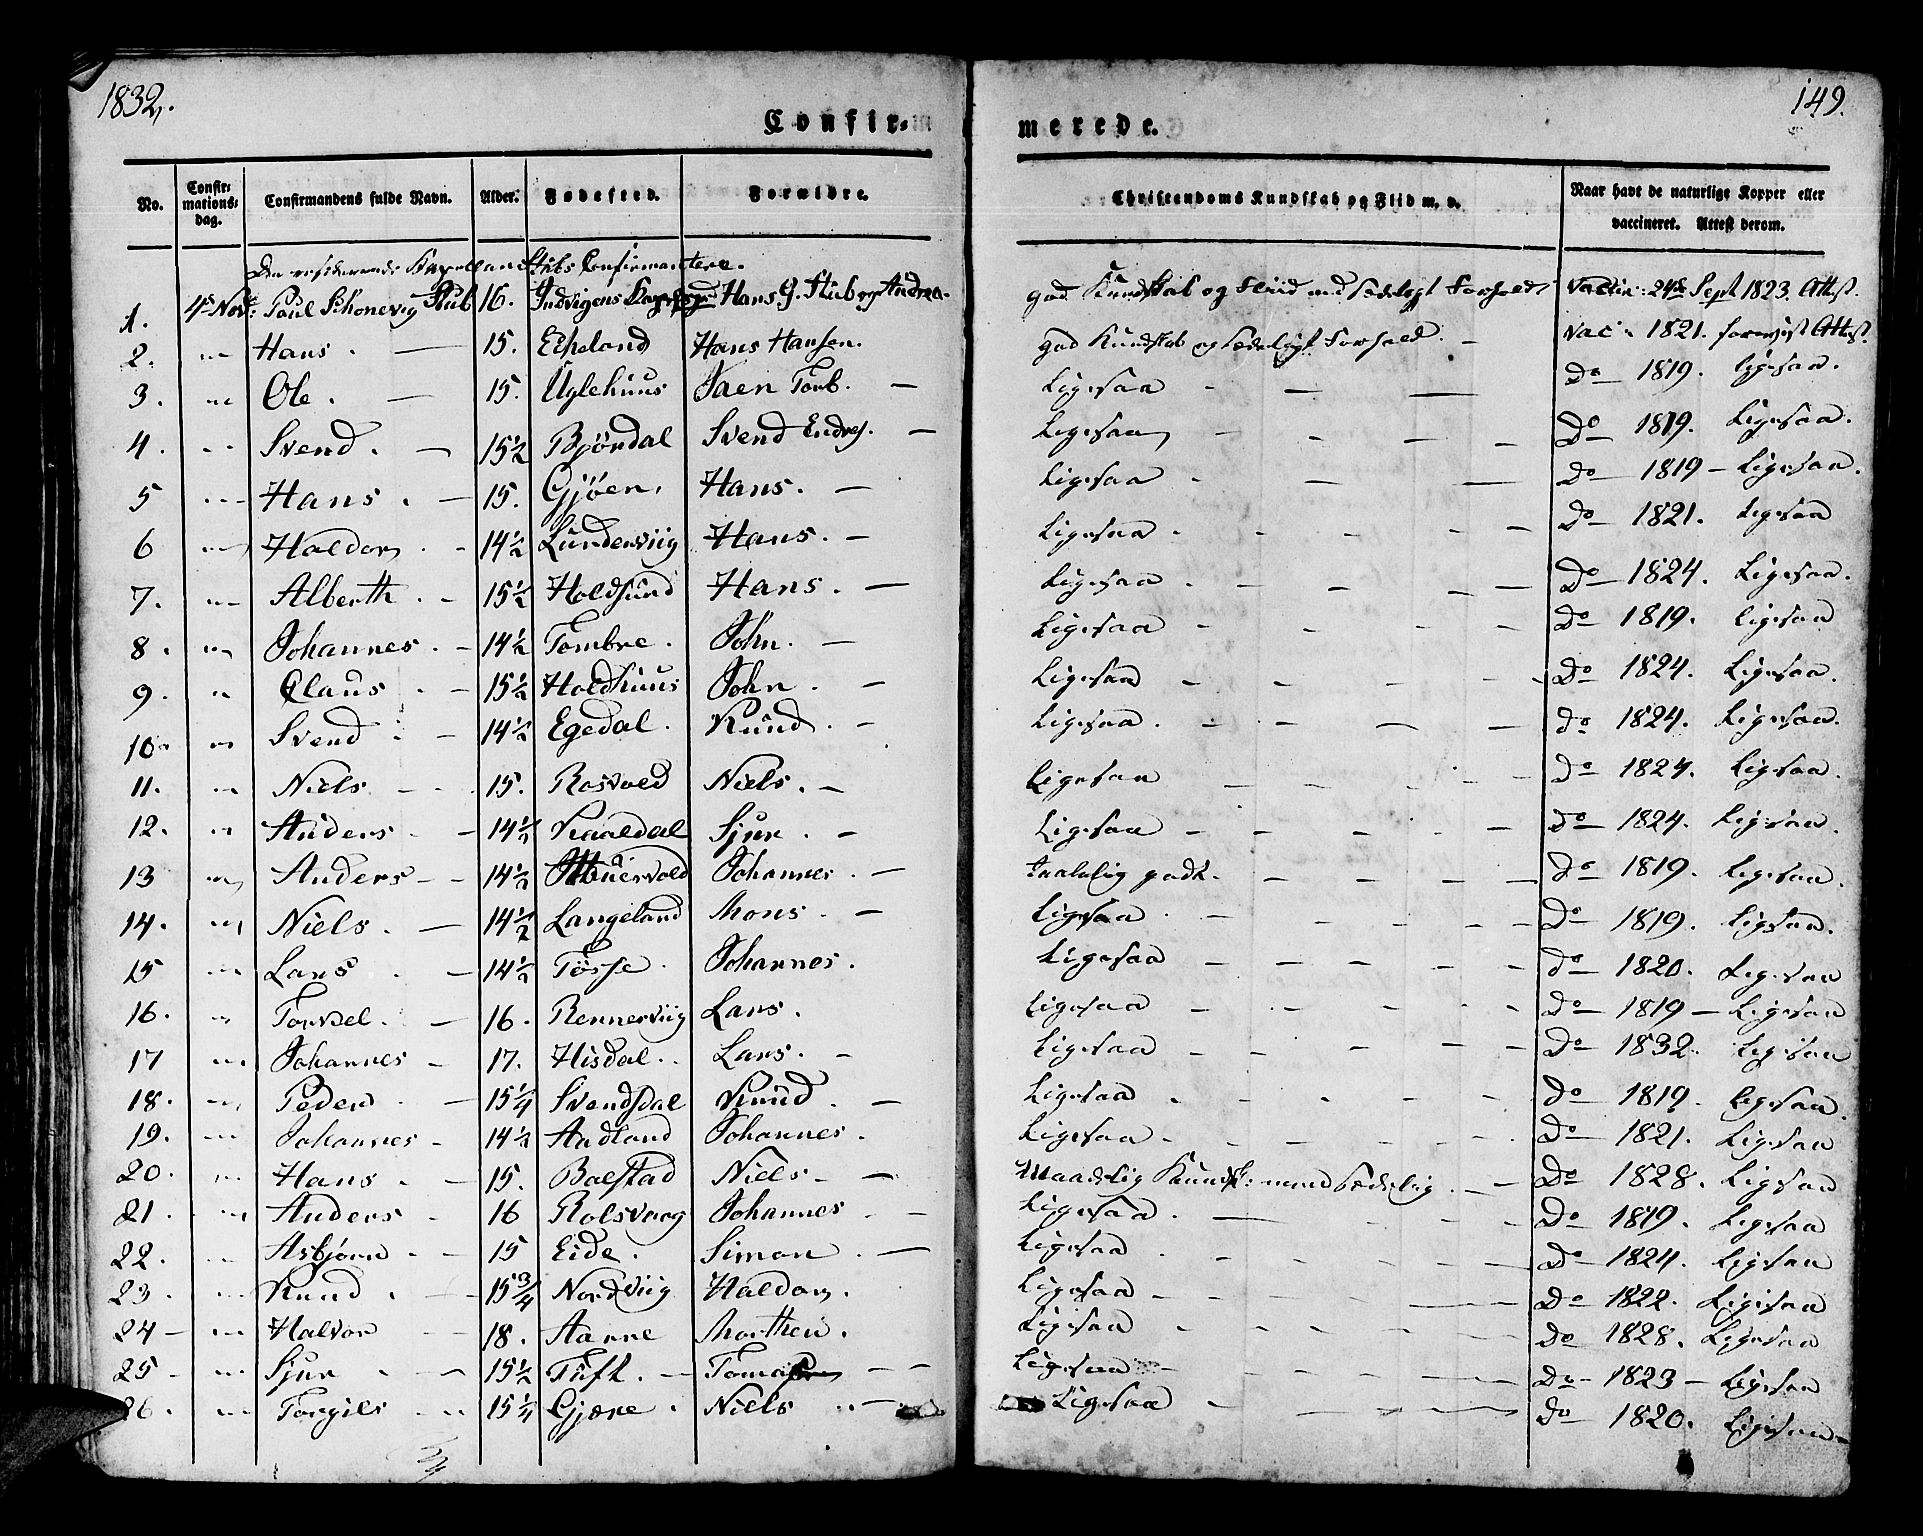 1832. 149.
Confir= merede.
No. Confir=mations=dag. Confirmandens fulde Navn. Alder. Fødested. Forældre. Christendoms Kundskab og Flid m. v. Naar havt de naturlige Kopper eller vaccineret. Attest derom.
Den residerende Capellan Stubs Confirmantere.
1. 4de Novb: Paul Schonevig Stub 16. Hans G. Stub og Andrea. god Kundskab og Fliid med sædeligt Forhold Vaccin: 24de Sept 1823. Attst.
2. " Hans. — 15. Eikeland Hans Hansen. god Kundskab og sædeligt Forhold. — Vac: 1821. foreviist Attst.
3. " Ole. — 15. Uglehuus Torb. — Ligesaa - — — Do — 1819. ligesaa.
4. " Svend. — 15½ Bjørdal Svend Endres. — Ligesaa - - - - Do — 1819. Ligesaa.
5 " Hans. — 15. Gjøen. Hans. — Ligesaa - — — Do — 1819 — Ligesaa.
6 " Haldor. - 14½ Lunderviig Hans. — Ligesaa - - - - - Do — 1821. Ligesaa
7. " Alberth. - 15½ Holdsund Hans. — Ligesaa - - - - - Do — 1824. Ligesaa.
8. " Johannes. - 14½ Tombre. John. — Ligesaa - - - - Do — 1819. ligesaa
9. " Claus. - 15½ Holdhuus John. — Ligesaa - - - - - Do — 1824. Ligesaa.
10. " Svend - - 14½ Egedal. Knud. - Ligesaa. - - — - do — 1824. Ligesaa.
11. " Niels. - - 15. Rosvold Niels. — Ligesaa - - - - Do — 1824. Ligesaa.
12. " Anders - - 14½ Skaaldal Sjur. - Ligesaa - - - - Do — 1824. Ligesaa.
13 " Anders - - 14½ Johannes. — taalelig godt. - - - - Do — 1819. Ligesaa.
14. " Niels. — 14½ Langeland Mons. — Ligesaa. - - - - Do — 1819. Ligesaa.
15 " Lars. - 14½ Tøsse. Johannes. Ligesaa - - - - - do — 1820. Ligesaa
16. " Torkel. — 16. Rennerviig Lars. ligesaa - - - - - Do — 1819 — Ligesaa
17 " Johannes - 17. Hisdal. Lars. - Ligesaa - - - - - Do — 1832. Ligesaa
18. " Peder. — 15¼ Svendsdal Knud. — Ligesaa - - - - - Do — 1819. Ligesaa.
19. " Johannes - 14½ Aadland Johannes. Ligesaa - - - - - Do — 1821. Ligesaa
20. " Hans. - 15. Bolstad Niels - - Maadelig Kundsk: men sædelig. - - Do — 1828. Ligesaa
21. " Anders - 16 Rolsvaag Johannes - - Ligesaa. — - - Do — 1819. Ligesaa
22. " Asbjørn - - 15 Eide. Simon. — Ligesaa. - - - - Do — 1824. Ligesaa
23. " Knud. - 15¾ Nordviig Haldor. Ligesaa - - - — — Do — 1822. Ligesaa
24 - " Halvor - - 18. Aarre Morthen. Ligesaa - - - - - Do — 1828. Ligesaa
25 - " Sjur - - 15½ Tuft. — - - Ligesaa - - - - - Do - 1823 — Ligesaa
26. " Torgils - 15¼ Gjære. Niels - - Ligesaa - - - - Do — 1820. Ligesaa